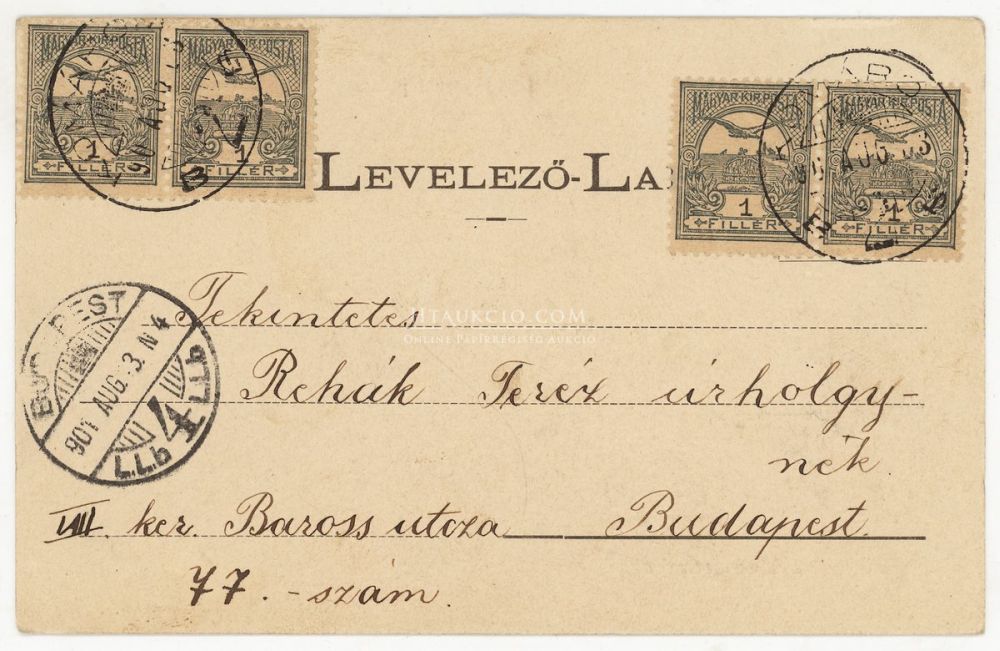 MAGYAR·KIR·POSTA MAGYAR·KIR·POSTA
1 1
FILLÉR FILLÉR
MAGYAR·KIR·POSTA MAGYAR·KIR·POSTA
1 1
FILLÉR FILLÉR
AUG. 03
LEVELEZŐ-LA
BUDAPEST
901 AUG. 3. N 4
4
Tekintetes
HTAUKCIO.COM
ONLINE PAPÍRRÉGISÉG AUKCIÓ
Rehák Teréz úrhölgy-
nek.
VIII. ker. Baross utcza Budapest.
77. - szám.